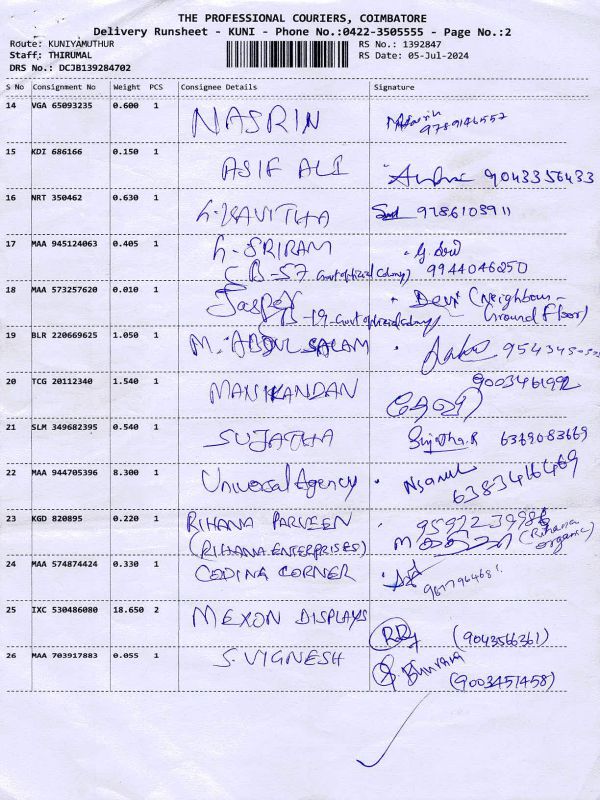 THE PROFESSIONAL COURIERS, COIMBATORE
Delivery Runsheet - KUNI - Phone No.:0422-3505555 - Page No.:2
Route: KUNIYAMUTHUR RS No.: 1392847
Staff: THIRUMAL RS Date: 05-Jul-2024
DRS No.: DCJB139284702
S No Consignment No Weight PCS Consignee Details Signature
14 VGA 65093235 0.600 1 NASRIN
9789146557
15 KDI 686166 0.150 1 ASIF ALI 9043356433
16 NRT 350462 0.630 1 h-KAVITHA 9786103911
17 MAA 945124063 0.405 1 h-SRIRAM
CB-57 9944046250
18 MAA 573257620 0.010 1 Devi (Neighbour-
B-19- Ground Floor)
19 BLR 220669625 1.050 1 M. ABDUL SALAM
20 TCG 20112340 1.540 1 MANIKANDAN 9003461992
21 SLM 349682395 0.540 1 SUJATHA Sujatha.R 6369083669
22 MAA 944705396 8.300 1 Universal Agency 6383416469
23 KGD 820895 0.220 1 RIHANA PARVEEN
(RIHANA ENTERPRISES) (Rihana organic)
24 MAA 574874424 0.330 1 CODING CORNER
25 IXC 530486080 18.650 2 MEXON DISPLAYS
(9043566361)
26 MAA 703917883 0.055 1 S. VIGNESH
(9003451458)